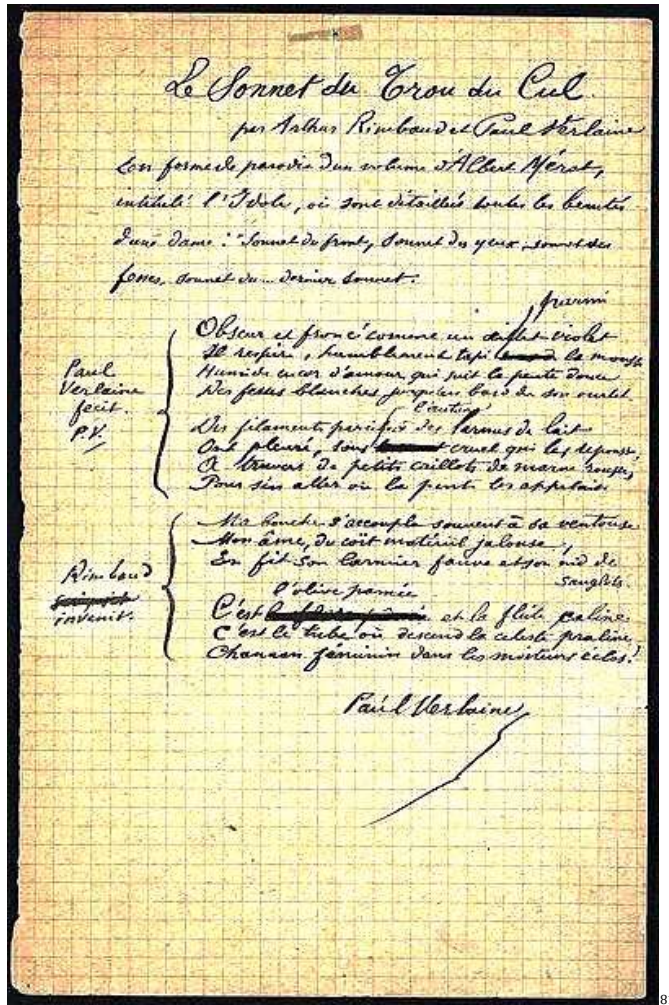 Le Sonnet du Trou du Cul.
par Arthur Rimbaud et Paul Verlaine
en forme de parodie d'un volume d'Albert Mérat,
intitulé l'Idole, où sont détaillées toutes les beautés
d'une dame : "Sonnet du front, Sonnet des yeux, sonnet des
fesses, sonnet du... dernier sonnet.
parmi
Obscur et froncé comme un œillet violet
Il respire, humblement tapi la mousse
Humide encor d'amour qui suit la pente douce
Des fesses blanches jusqu'au bord de son ourlet.
Paul
Verlaine
fecit.
P.V.
l'autan
Des filaments pareils à des larmes de lait
Ont pleuré, sous cruel qui les repousse,
A travers de petits caillots de marne rousse,
Pour s'en aller où la pente les appelait.
Ma bouche s'accoupla souvent à sa ventouse
Mon âme, du coït matériel jalouse,
En fit son larmier fauve et son nid de
sanglots.
Rimbaud
invenit.
l'olive pamée
C'est et la flûte caline
C'est le tube où descend la celeste praline
Chanaan féminin dans les moiteurs éclos !
Paul Verlaine
8